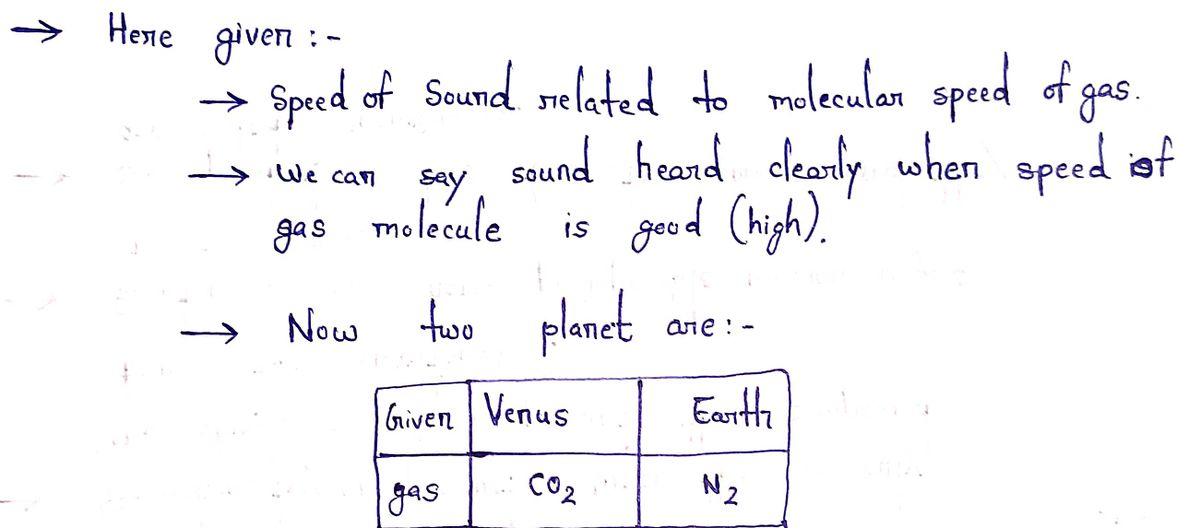 → Here given :-
→ Speed of Sound related to molecular speed of gas.
→ We can say sound heard clearly when speed of
gas molecule is good (high).
→ Now two planet are :-
Given Venus Earth
gas CO₂ N₂